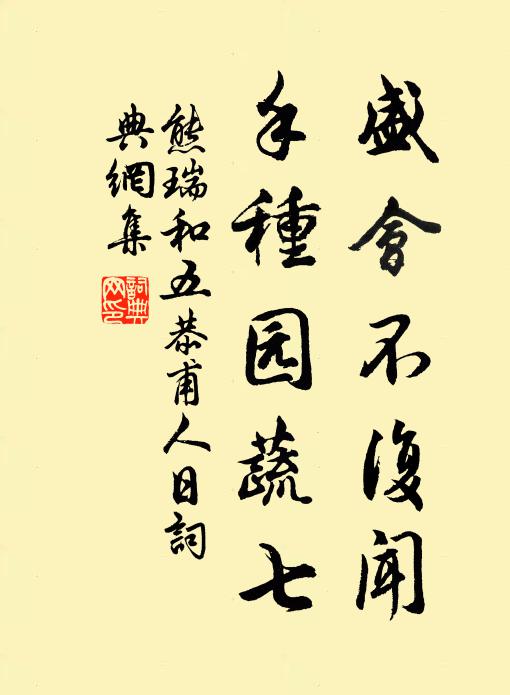 盛會不復聞
手種园蔬七
熊瑞和五恭甫人日詞
典網集
詞典
网印